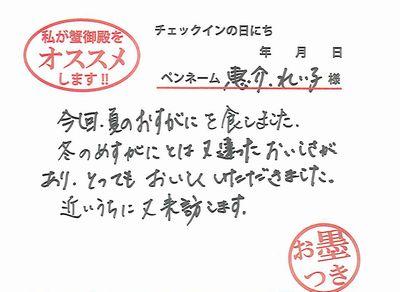 私が蟹御殿を
オススメ
します!!
チェックインの日にち
年 月 日
ペンネーム 恵介.れい子 様
今回.夏のおすがにを食しました.
冬のめすがにとは又違ったおいしさが
あり.とってもおいしくいただきました。
近いうちに又来訪します.
お墨
つき